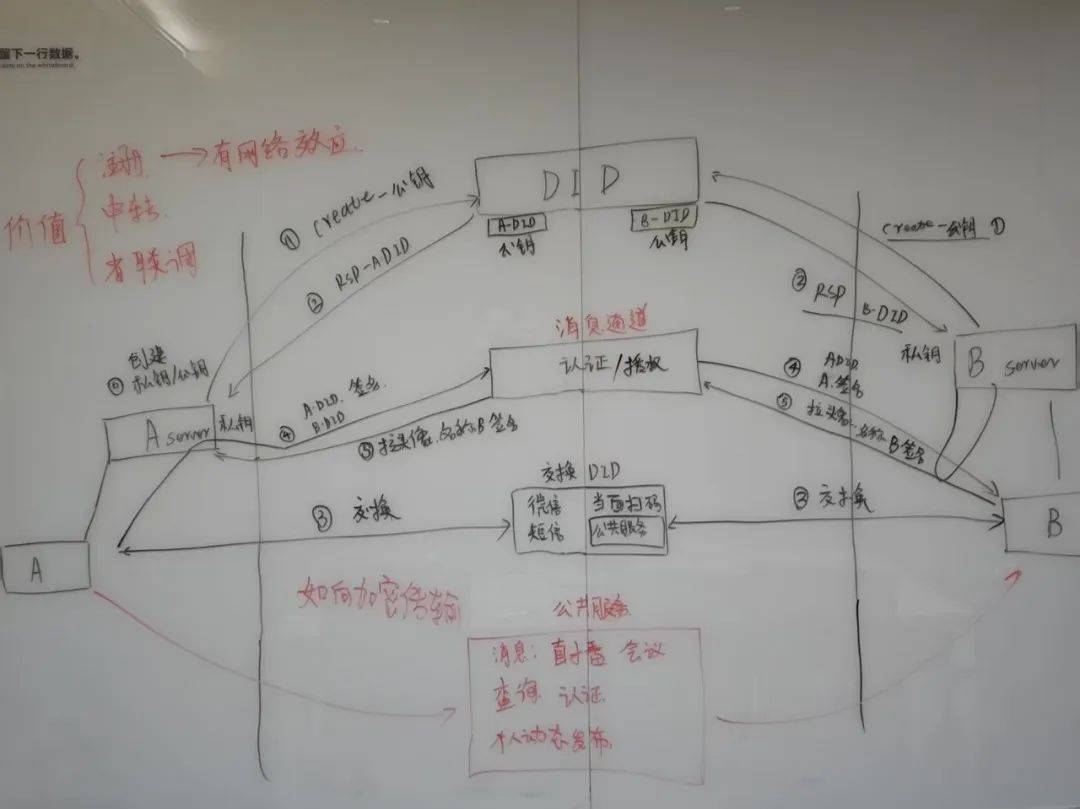 留下一行数据。
价值
注册 → 有网络效应.
中转.
省联调
DID
A-DID
公钥
B-DID
公钥
① Create-公钥
② RSP-ADID
create-公钥 ①
② RSP B-DID
消息通道
认证/授权
⓪ 创建
私钥/公钥
A server
私钥
④ A-DID. 签名
B-DID
⑤ 拉头像.名称B签名
④ ADID
A.签名
⑤ 拉头像.名称B签名
私钥
B server
交换 DID
微信
短信
当面扫码
公共服务
③ 交换
③ 交换
A
B
如何加密传输
公共服务
消息: 直播 会议
查询 认证
个人动态发布.